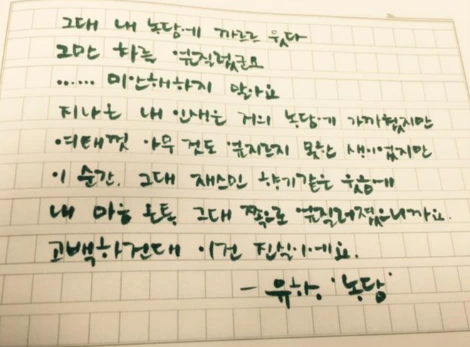 그대 내 농담에 까르르 웃다
그만 차를 엎질렀군요
...... 미안해하지 말아요
지나온 내 인생은 거의 농담에 가까웠지만
여태껏 아무 것도 엎지르지 못한 생이었지만
이 순간, 그대 재스민 향기같은 웃음에
내 마음 온통 그대 쪽으로 엎질러졌으니까요.
고백하건대 이건 진실이에요.
- 유하, '농담'